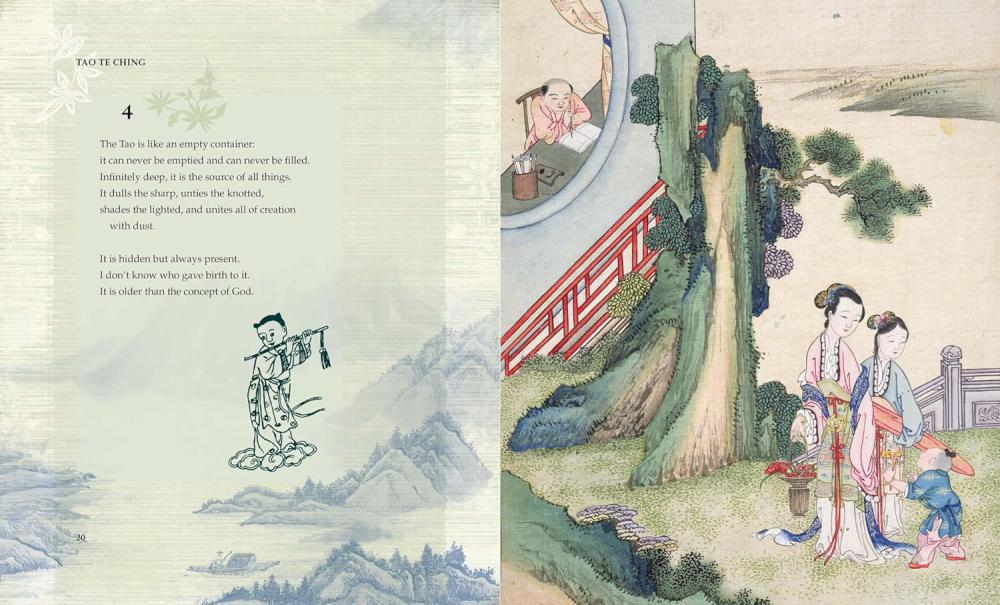 TAO TE CHING
4
The Tao is like an empty container:
it can never be emptied and can never be filled.
Infinitely deep, it is the source of all things.
It dulls the sharp, unties the knotted,
shades the lighted, and unites all of creation
with dust.
It is hidden but always present.
I don't know who gave birth to it.
It is older than the concept of God.
20